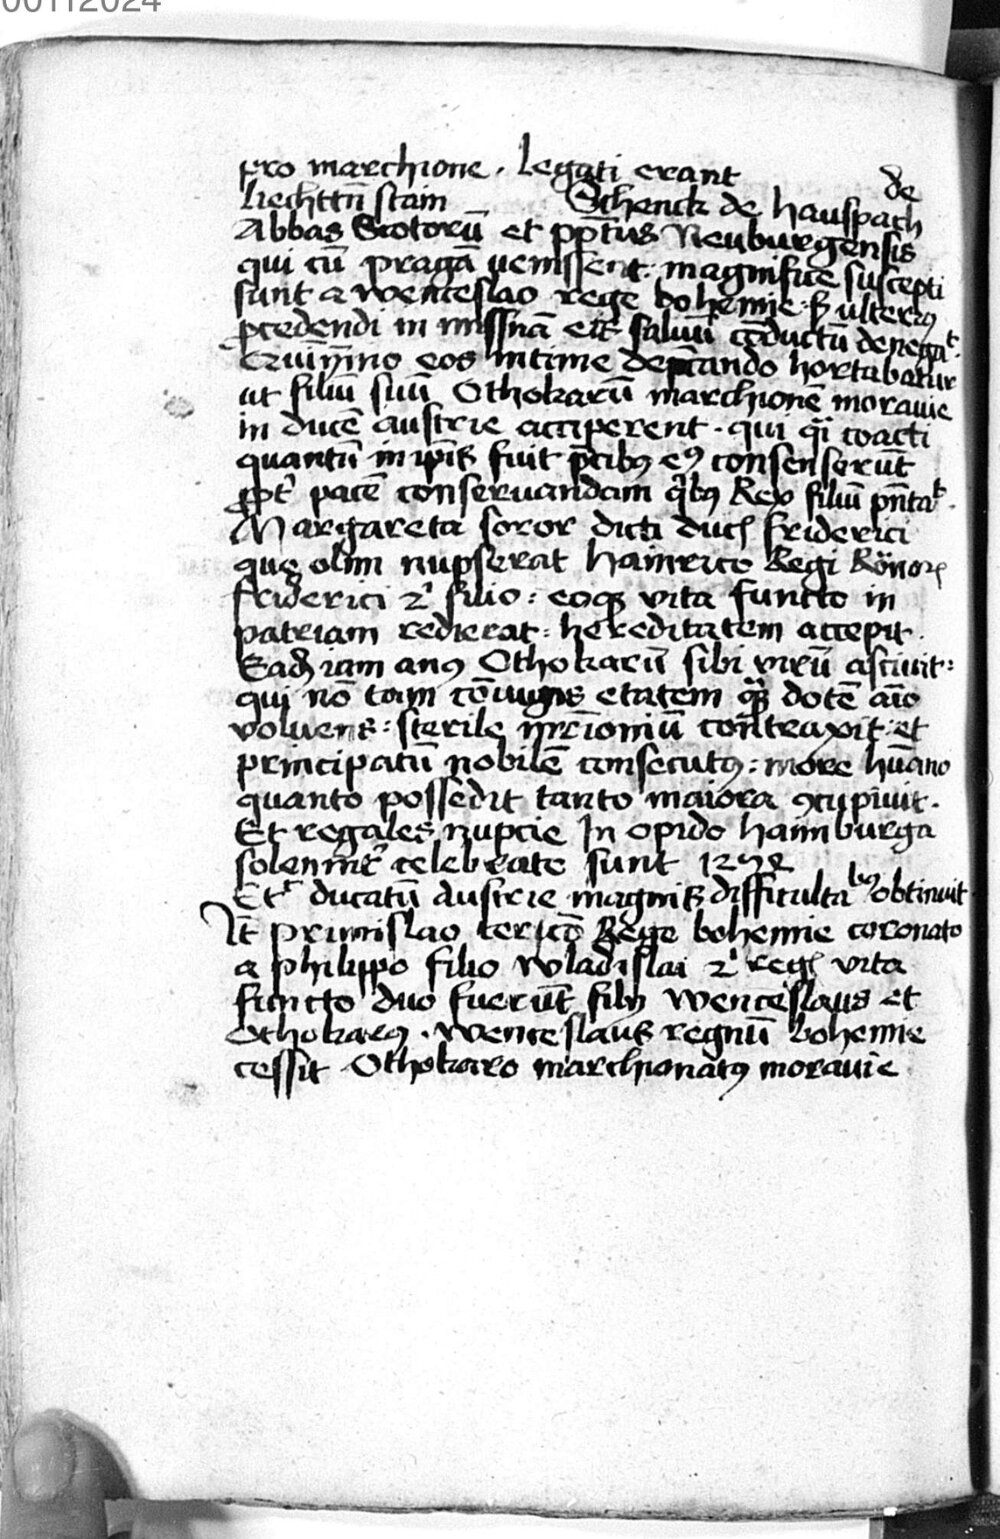 00112024
pro marchione . Legati erant de
liechttn̄ stain Schenck de hauspach
Abbas Scotorū et pp̄tus Neuburgensis
qui cū pragā venissent : magnifice suscepti
sunt a wenceslao rege bohemie . s̄ ulterius
procedendi in missnā eis saluū cōductū denegat .
eos intime deprecando hortabatur
ut filiū suū Othokarū marchionē morauie
in ducē austrie acciperent . qui q̄i coacti
quantū in ip̄is fuit p̄cibꝰ eiꝰ consenserūt
ꝓpt̄ pacē conseruandam q̄ibꝰ Rex filiū p̄ntat .
Margareta soror dicti ducis friderici
que olim nupserat hainrico Regi Romanoꝝ
friderici 2ⁱ filio : eoqꝫ vita functo in
patriam redierat : hereditatem accepit .
Eadē iam anꝰ Othokarū sibi virū asciuit :
qui nō tam cōiugis etatem q̄ꝫ dotē aīo
voluens : sterile mr̄imoniū contraxit : et
principatū nobilē consecutꝰ : more hūano
quanto possedit tanto maiora ꝯcupiuit .
Et regales nupcie In opido haimburga
solennit̄ celebrate sunt
Et ducatū Austrie magnis difficultabꝰ obtinuit
It̄ primislao tercio Rege bohemie coronato
a philippo filio wladislai 2ⁱ regis vita
functo duo fuerūt filij wenceslaus et
Othokarꝰ . wenceslaus regnū bohemie
cessit Othokaro marchionatꝰ morauie